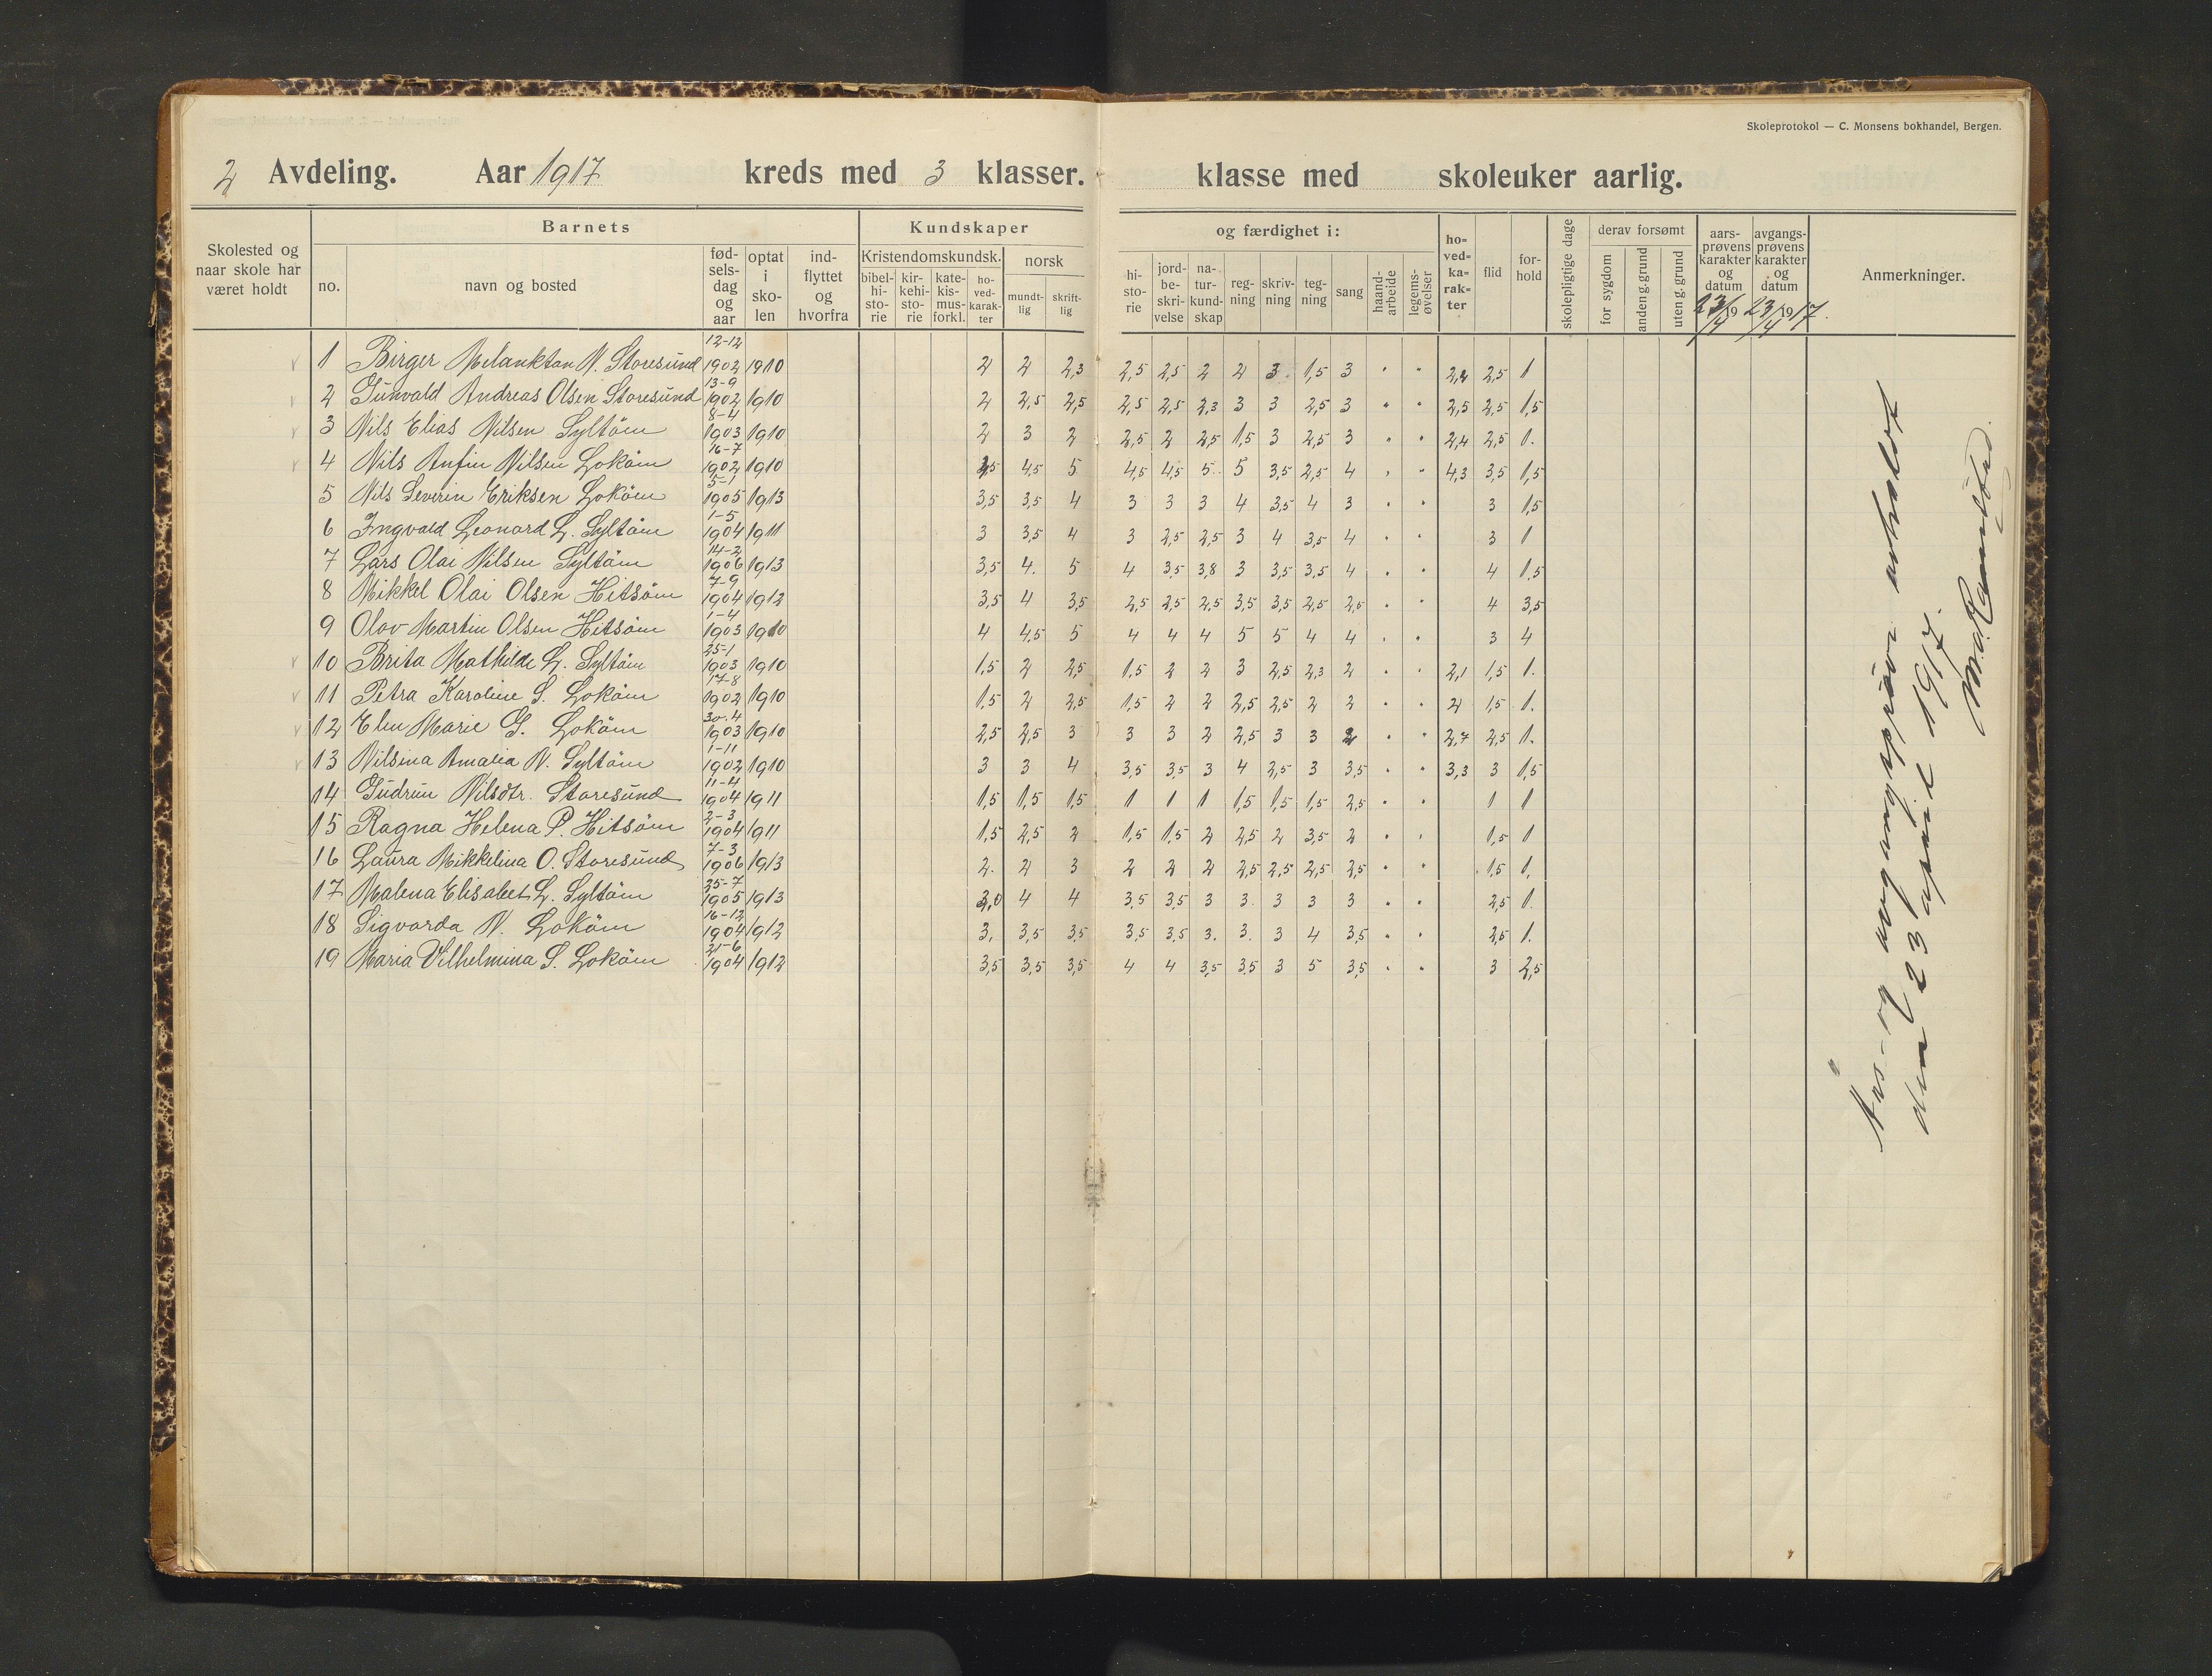 Skoleprotokol — C. Monsens bokhandel, Bergen.
2 Avdeling. Aar 1917 kreds med 3 klasser. klasse med skoleuker aarlig.
Skolested og naar skole har været holdt
Barnets
no.
navn og bosted
fød-sels-dag og aar
optat i sko-len
ind-flyttet og hvorfra
Kundskaper
Kristendomskundsk.
bibel-hi-sto-rie
kir-kehi-sto-rie
kate-kis-mus-forkl.
ho-ved-karak-ter
norsk
mundt-lig
skrift-lig
og færdighet i:
hi-sto-rie
jord-be-skri-velse
na-tur-kund-skap
reg-ning
skriv-ning
teg-ning
sang
haand-arbeide
legems-øvelser
ho-ved-ka-rak-ter
flid
for-hold
skolepligtige dage
derav forsømt
for sygdom
anden g. grund
uten g. grund
aars-prøvens karakter og datum
23/4 19
avgangs-prøvens karakter og datum
23/4 1917.
Anmerkninger.
1 Birger Melankton N. Storesund 12-12 1902 1910 2 2 2,3 2,5 2,5 2 2 3 1,5 3 " " 2,2 2,5 1
2 Gunvald Andreas Olsen Storesund 13-9 1902 1910 2 2,5 2,5 2,5 2,5 2,3 3 3 2,5 3 " " 2,5 2,5 1,5
3 Nils Elias Nilsen Syltöm 8-4 1903 1910 2 3 2 2,5 2 2,5 1,5 3 2,5 3 " " 2,4 2,5 1.
4 Nils Anfin Nilsen Loköm 16-7 1902 1910 4,5 5 4,5 4,5 5 5 3,5 2,5 4 " " 4,3 3,5 1,5
5 Nils Severin Eriksen Loköm 5-1 1905 1913 3,5 3,5 4 3 3 3 4 3,5 4 3 " " 3 1,5
6 Ingvald Leonard L. Syltöm 1-5 1904 1911 3 3,5 4 3 2,5 2,5 3 4 3,5 4 " " 3 1
7 Lars Olai Nilsen Syltöm 14-2 1906 1913 3,5 4. 5 4 3,5 3,8 3 3,5 3,5 4 " " 4 1,5
8 Mikkel Olai Olsen Hitsöm 7-9 1904 1912 3,5 4 3,5 2,5 2,5 2,5 3,5 3,5 2,5 2,5 " " 4 3,5
9 Olav Martin Olsen Hitsöm 1-4 1903 1910 4 4,5 5 4 4 4 5 5 4 4 " " 3 4
10 Brita Mathilde L. Syltöm 25-1 1903 1910 1,5 2 2,5 1,5 2 2 3 2,5 2,3 2 " " 2,1 1,5 1.
11 Petra Karoline S. Loköm 17-8 1902 1910 1,5 2 2,5 1,5 2 2 2,5 2,5 2 2 " " 2 1,5 1.
12 Elen Marie G. Loköm 30-4 1903 1910 2,5 2,5 3 3 3 2 2,5 3 3 2 " " 2,7 2,5 1.
13 Nilsina Amalia N. Syltöm 1-11 1902 1910 3 3 4 3,5 3,5 3 4 2,5 3 3,5 " " 3,3 3 1,5
14 Gudrun Nilsdtr. Storesund 11-4 1904 1911 1,5 1,5 1,5 1 1 1 1,5 1,5 1,5 2,5 " " 1 1
15 Ragna Helena P. Hitsöm 2-3 1904 1911 1,5 2,5 2 1,5 1,5 2 2,5 2 3,5 2 " " 1,5 1
16 Laura Mikkelina O. Storesund 7-3 1906 1913 2. 2 3 2 2 2 2,5 2,5 2,5 2,5 " " 1,5 1.
17 Malena Elisabet L. Syltöm 25-7 1905 1913 3,0 4 4 3,5 3,5 3 3. 3 3 3 " " 2,5 1.
18 Sigvarda N. Loköm 16-12 1904 1912 3. 3,5 3,5 3,5 3,5 3. 3. 3 4 3,5 " " 2,5 1.
19 Maria Vilhelmina S. Loköm 21-6 1904 1912 3,5 3,5 3,5 4 4 3,5 3,5 3 5 3,5 " " 3 2,5
Års- og avgangsprøve avholdt
den 23 april 1917.